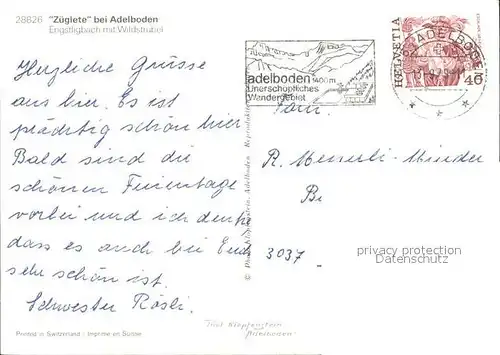 28626 "Züglete" bei Adelboden
Engstligbach mit Wildstrubel
HELVETIA
40
ADELBODEN
adelboden 1400m
Unerschöpfliches
Wandergebiet
Herzliche Grüsse
aus hier. Es ist
prächtig schön hier
Bald sind die
schönen Ferientage
vorbei und ich denke
dass es auch bei Euch
sehr schön ist.
Schwester Rösli.
Fam.
R.
Be
3037
privacy protection
Datenschutz
© Photo Klopfenstein, Adelboden Reproduktion
Printed in Switzerland Imprimé en Suisse
Klopfenstein
Adelboden